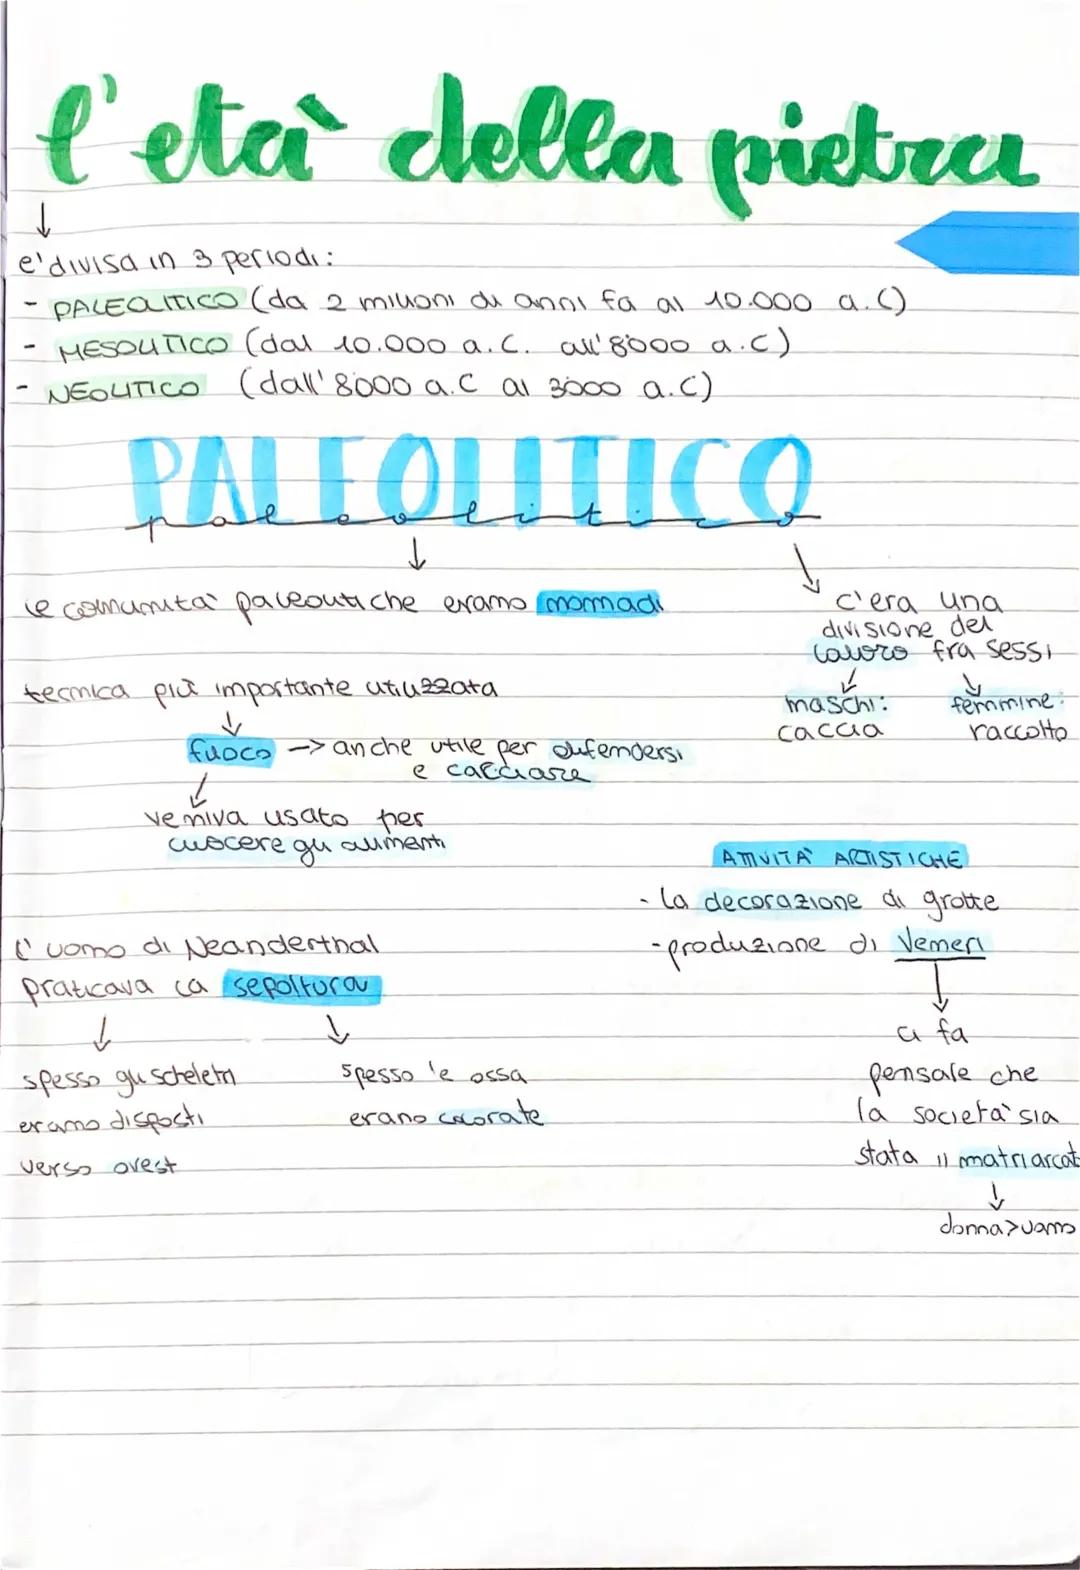 l'età della pietra
e' divisa in 3 periodi:
- PALEOLITICO (da 2 milioni di anni fa al 10.000 a.C)
- MESOLITICO (dal 10.000 a.C. all'8000 a.C)
- NEOLITICO (dall'8000 a.C al 3000 a.C)
PALEOLITICO
paleolitico
le comunita' paleolitiche erano nomadi
c'era una
divisione del
lavoro fra sessi
maschi:
caccia
femmine:
raccolto
tecnica più importante utilizzata
fuoco -> anche utile per difendersi
e cacciare
veniva usato per
cuocere gli alimenti
ATTIVITA' ARTISTICHE
- la decorazione di grotte
- produzione di Veneri
ci fa
pensare che
la societa' sia
stata il matriarcat
donna>uomo
l'uomo di Neanderthal
praticava la sepoltura
spesso gli scheletri
erano disposti
verso ovest
spesso le ossa
erano colorate